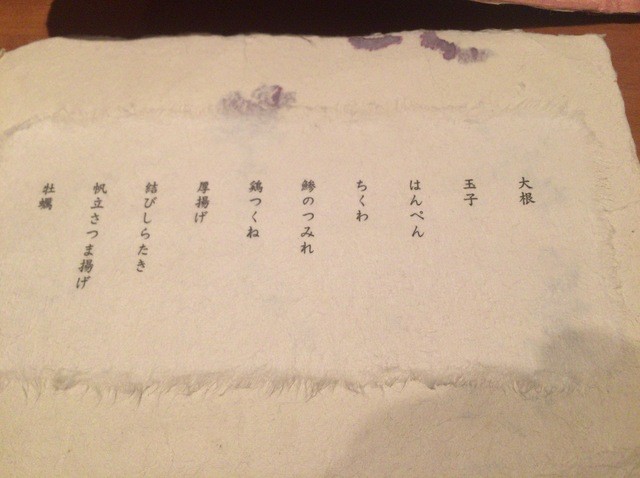 大根
玉子
はんぺん
ちくわ
鯵のつみれ
鶏つくね
厚揚げ
結びしらたき
帆立さつま揚げ
牡蠣